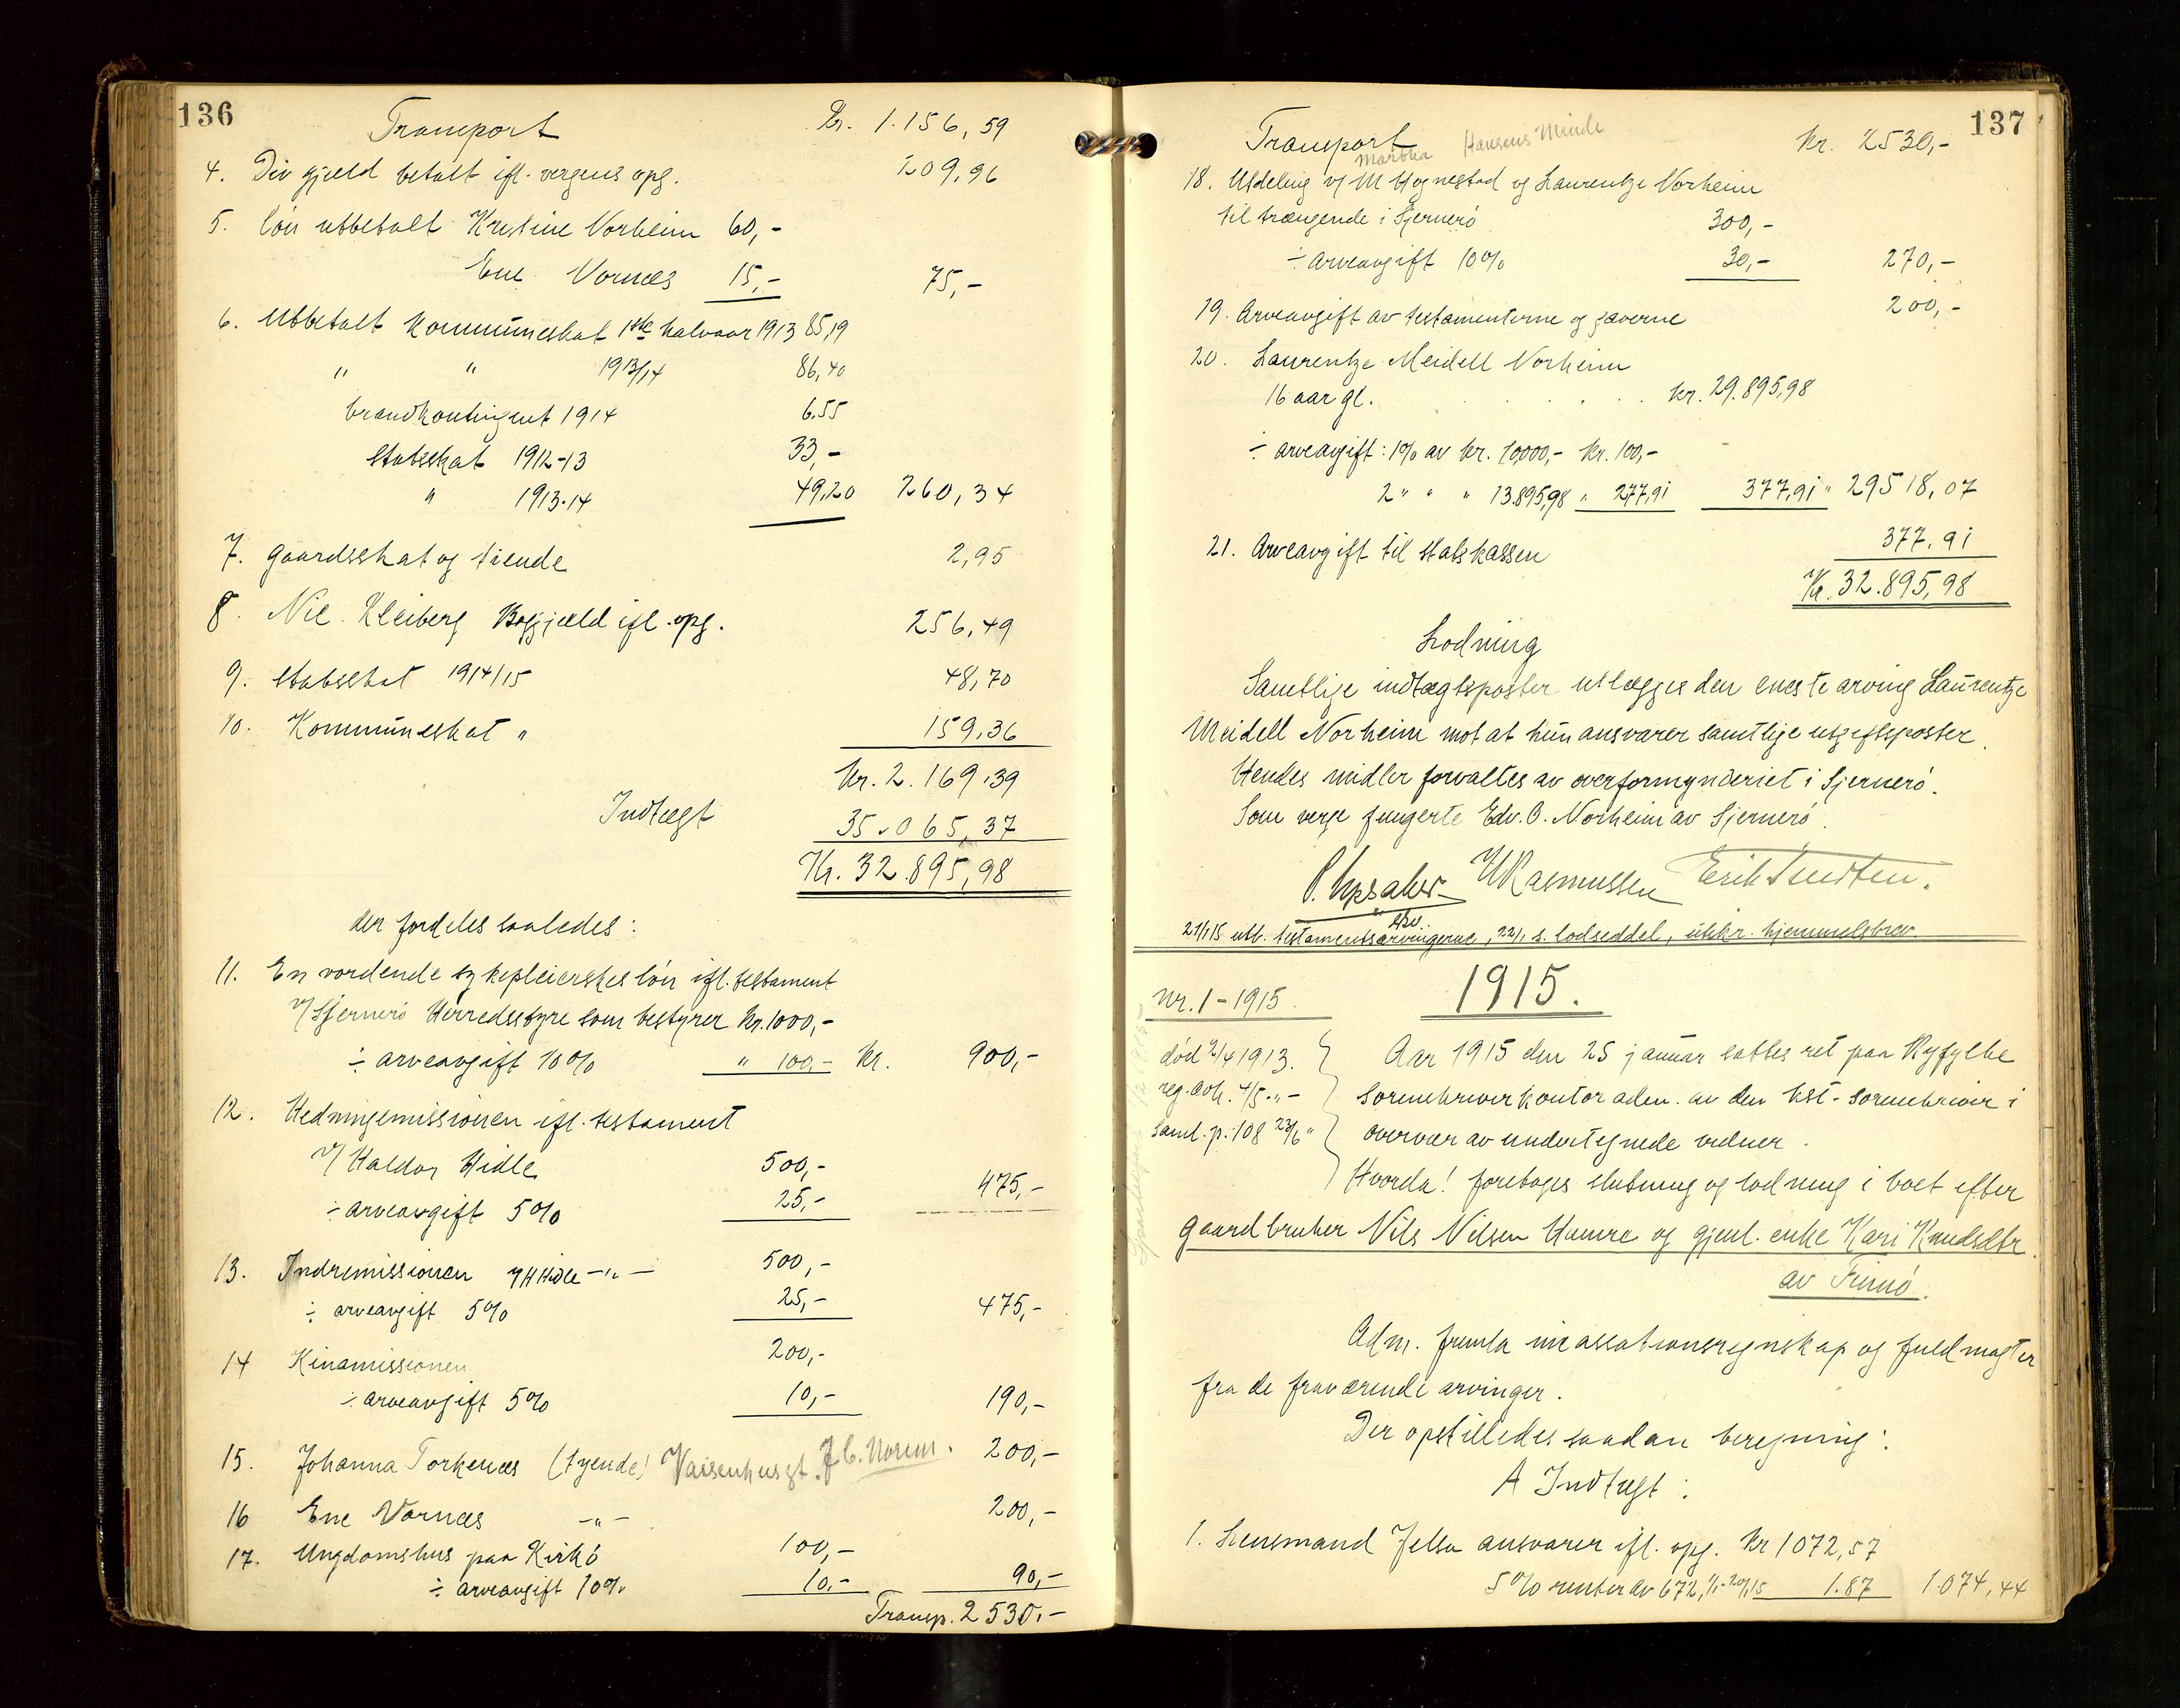 136
Transport Kr. 1.156,59
4. Div gjæld betalt ifl. vergens opg. 209,96
5. løn utbetalt Kristine Norheim 60,-
Ene Vornæs 15,- 75,-
6. Utbetalt kommuneskat 1ste halvaar 1913 85,19
" " 1913/14 86,40
brandkontingent 1914 6,55
Statsskat 1912-13 33,-
" 1913-14 49,20 260,34
7. gaardsskat og tiende 2,95
8. Nic. Kleiberg Bogjæld ifl. opg. 256,49
9. Statsskat 1914/15 48,70
10. Kommuneskat " 159,36
Kr. 2.169,39
Indtægt 35.065,37
Kr. 32.895,98
der fordeles saaledes:
11. En vordende sykepleierskes løn ifl. testament
v/ Sjernerø Herredsstyre som bestyrer kr. 1000,-
÷ arveavgift 10% " 100,- Kr. 900,-
12. Hedningemissionen ifl. testament
v/ Haldor Hidle 500,-
÷ arveavgift 5% 25,- 475,-
13. Indremissionen v/ H Hidle -"- 500,-
÷ arveavgift 5% 25,- 475,-
14 Kinamissionen 200,-
÷ arveavgift 5% 10,- 190,-
15. Johanna Torkenæs (tyende) Vaisenhusgt. 200,-
16 Ene Vornæs -"- 200,-
17. Ungdomshus paa Kirkø 100,-
÷ arveavgift 10% 10,- 90,-
Transp. 2530,-
137
Transport Kr. 2530,-
Martha Hansens Minde
18. Utdeling v/ M Hognestad og Laurentze Norheim
til trængende i Sjernerø 300,-
÷ arveavgift 10% 30,- 270,-
19. Arveavgift av testamenterne og gaverne 200,-
20. Laurentze Meidell Norheim
16 aar gl. . . . . kr. 29.895,98
÷ arveavgift: 1% av kr. 10,000,- kr. 100,-
2 " " " 13.895,98 " 277,91 377,91 " 29518,07
21. Arveavgift til statskassen 377,91
Kr. 32.895,98
Lodning
Samtlige indtægtsposter utlægges den eneste arving Laurentze
Meidell Norheim mot at hun ansvarer samtlige utgiftsposter.
Hendes midler forvaltes av overformynderiet i Sjernerø.
Som verge fungerte Edv. O. Norheim av Sjernerø.
P. Upsaker H Rasmussen Erik Knudsen.
21/1 15 utb. testamentsarvingerne, 22/1 s. lodseddel, utskr. hjemmelsbrev.
1915.
nr. 1 - 1915.
død 2/4 1913.
reg. avh. 4/5 -"-
saml. p. 108 23/6 "
Aar 1915 den 25 januar sattes ret paa Ryfylke
sorenskriverkontor adm. av den kst. sorenskriver i
overvær av undertegnede vidner.
Hvorda! foretoges slutning og lodning i boet efter
gaardbruker Nils Nilsen Hamre og gjenl. enke Kari Knudsdtr.
av Finnø.
Adm. fremla incassationsregnskap og fuldmagter
fra de fraværende arvinger.
Der opstilledes saadan beregning:
A Indtægt:
1. Lensmand Jelsa ansvarer ifl. opg. kr 1072,57
5% renter av 672, 1/1-20/1 15 1.87 1.074,44